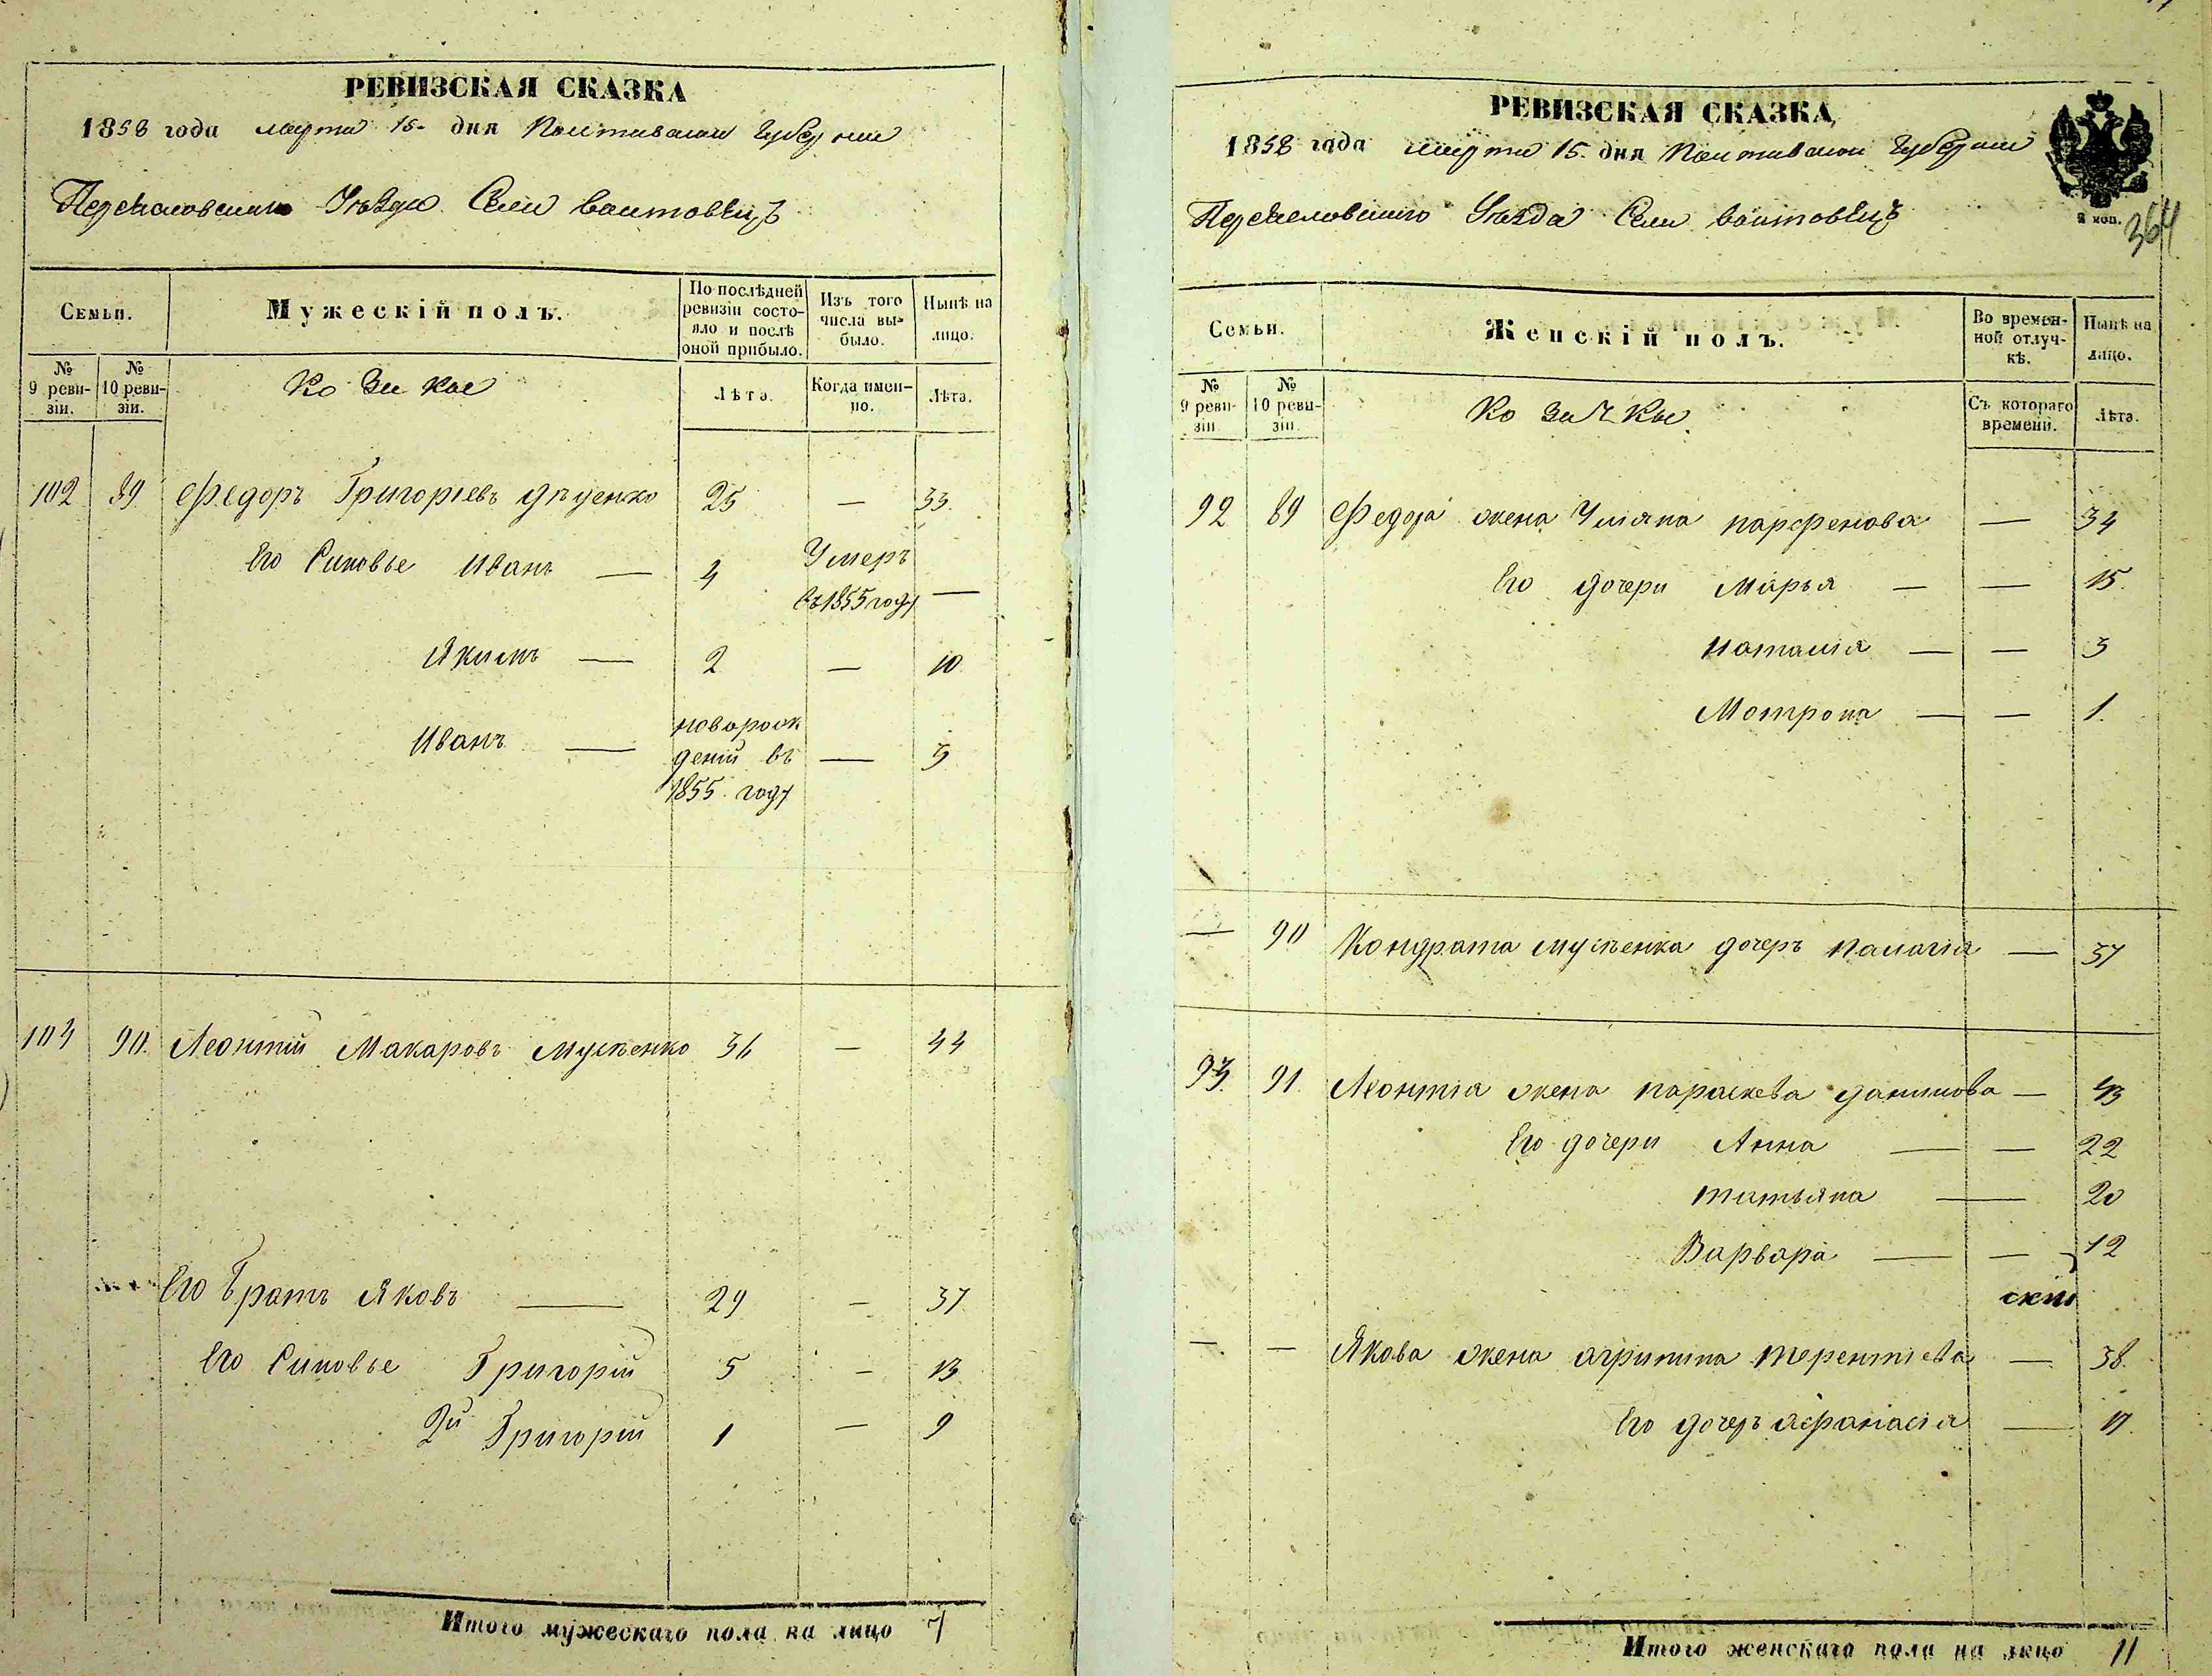 РЕВИЗСКАЯ СКАЗКА
1858 года марта 15 дня Полтавской Губернии
Переяславскаго Уѣзда Села Войтовецъ
Семьи.
Мужескій полъ.
По послѣдней ревизіи состояло и послѣ оной прибыло.
Изъ того числа выбыло.
Нынѣ на лицо.
№ 9 ревизіи.
№ 10 ревизіи.
Козаки
Лѣта.
Когда именно.
Лѣта.
102 89 Федоръ Григоріевъ 25 — 33
Его Синовье Иванъ — 4 Умеръ въ 1855 году —
Якимъ — 2 — 10
Иванъ — новорожденій въ 1855 году — 3
90. Леонтій Макаровъ Мусѣенко 36 — 44
Его Братъ Яковъ — 29 — 37
Его Синовье Григорій 5 — 13
2й Григорій 1 — 9
Итого мужескаго пола на лицо 7
РЕВИЗСКАЯ СКАЗКА
1858 года марта 15 дня Полтавской Губернии
Переяславскаго Уѣзда Села Войтовецъ
364
Семьи.
Женскій полъ.
Во временной отлучкѣ.
Нынѣ на лицо.
№ 9 ревизіи
№ 10 ревизіи
Козачки
Съ котораго времени.
Лѣта.
92 89 Федора жена Уляна Парфенова — 34
Его дочери Марья — — 15
Наталія — — 3
Мотрона — — 1.
— 90 Кондрата Мусѣенка дочеръ Палагія — 37
93. 91. Леонтія жена Параскева Данилова — 43
Его дочери Анна — — 22
Татьяна — 20
Варвара — — 12
— — Якова жена Агрипина Терентіева — 38.
Его дочеръ Афанасія — 17.
Итого женскаго пола на лицо 11